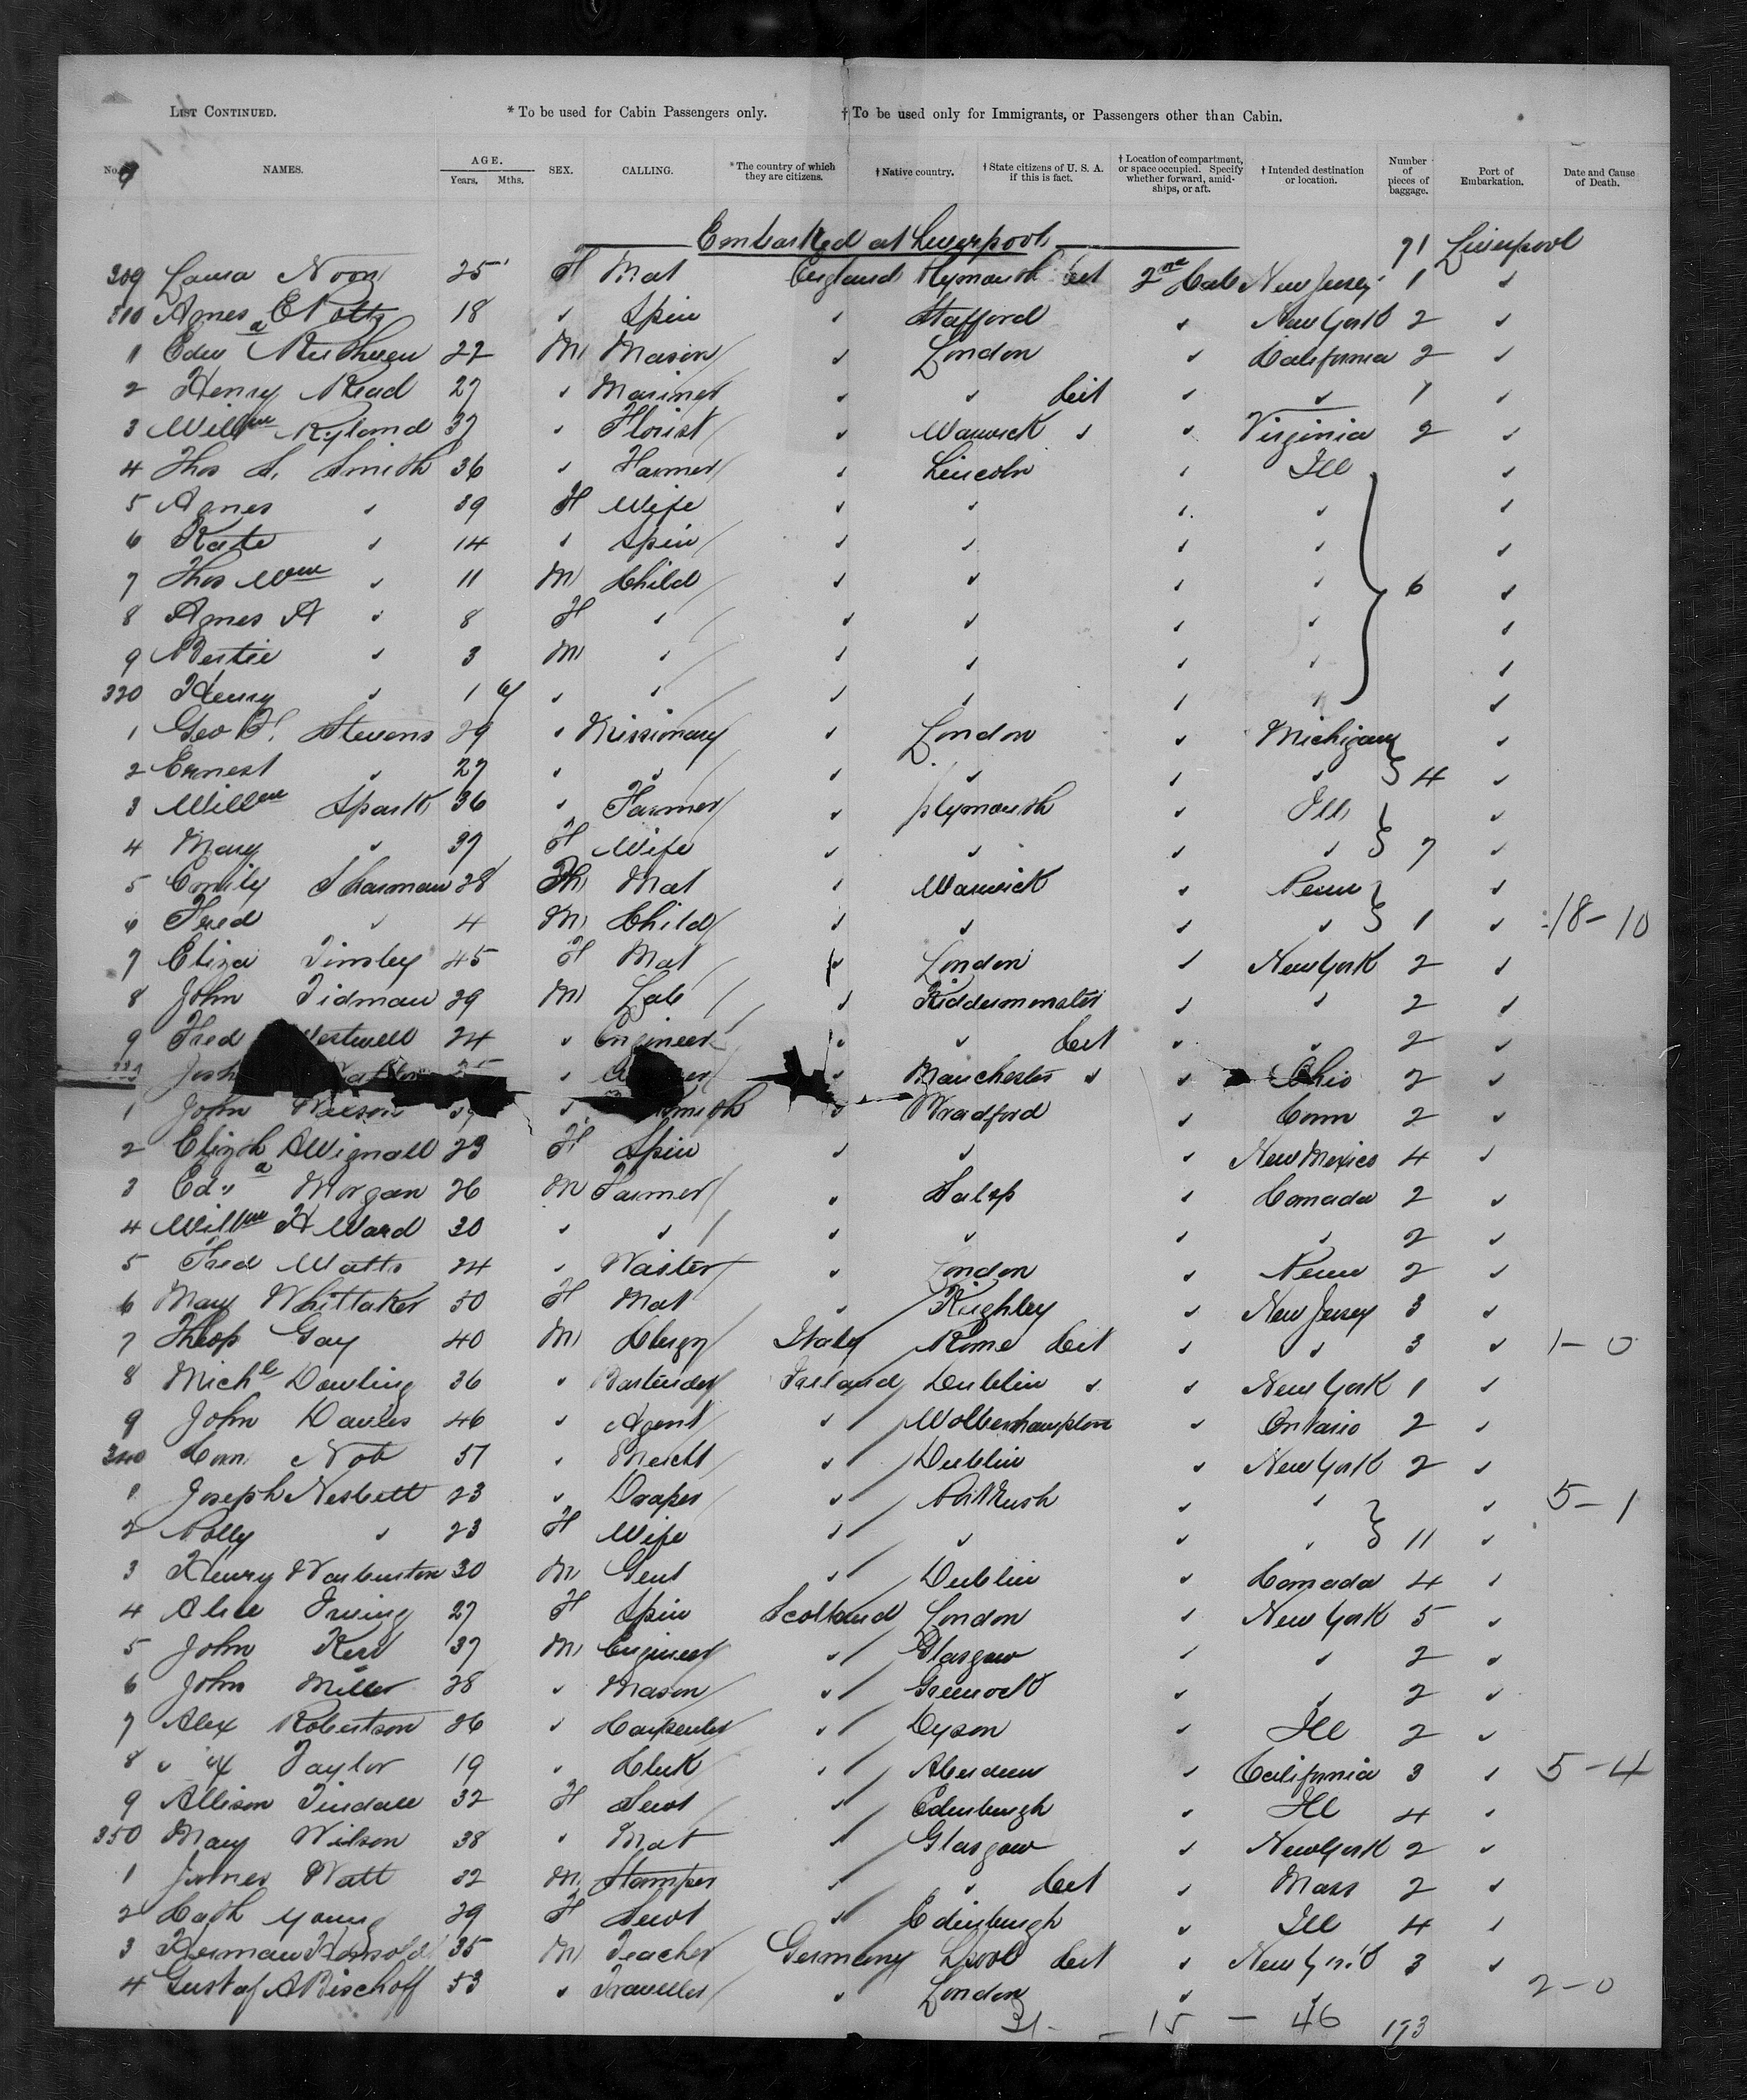 LIST CONTINUED. * To be used for Cabin Passengers only. † To be used only for Immigrants, or Passengers other than Cabin.
No. NAMES. AGE. Years. Mths. SEX. CALLING. * The country of which they are citizens. † Native country. † State citizens of U. S. A. if this is fact. † Location of compartment, or space occupied. Specify whether forward, amidships, or aft. † Intended destination or location. Number of pieces of baggage. Port of Embarkation. Date and Cause of Death.
9
Embarked at Liverpool 71 Liverpool
309 Laura Noon 25 F Mat England Plymouth Cit 2nd Cab New Jersey 1 "
310 Agnes E Potts 18 " Spin " Stafford " New York 2 "
1 Edwd Ruthven 22 M Mason " London " California 2 "
2 Henry Read 27 " Mariner " " Cit " " 1 "
3 Willm Ryland 37 " Florist " Warwick " " Virginia 2 "
4 Thos S. Smith 36 " Farmer " Lincoln " Ill "
5 Agnes " 39 F Wife " " " " "
6 Kate " 14 " Spin " " " " "
7 Thos Wm " 11 M Child " " " " 6 "
8 Agnes A " 8 F " " " " " "
9 Bertie " 3 M " " " " " "
320 Henry " 1 " " " " " " "
1 Geo F. Stevens 29 " Missionary " London " Michigan "
2 Ernest " 27 " " " " " " 4 "
3 Willm Spark 36 " Farmer " Plymouth " Ill "
4 Mary " 37 F Wife " " " " 7 "
5 Emily Sharman 28 Mat " Warwick " Penn "
6 Fred " 4 M Child " " " " 1 " 18-10
7 Eliza Tinsley 45 F Mat " London " New York 2 "
8 John Tidman 29 M Lab " Kidderminster " " 2 "
9 Fred Westwell 24 " Engineer " " Cit " " 2 "
" " Manchester " " Ohio 2 "
1 John " " Bradford " Conn 2 "
2 Elizth A Wignall 23 F Spin " " " New Mexico 4 "
3 Edwd Morgan 26 M Farmer " Salop " Canada 2 "
4 Willm H Ward 30 " " " " " " 2 "
5 Fred Watts 24 " Waiter " London " Penn 2 "
6 Mary Whittaker 50 F Mat " Keighley " New Jersey 3 "
7 Theop Gay 40 M Clergy Italy Rome Cit " " 3 " 1-0
8 Michl Dowling 36 " Bartender Ireland Dublin " " New York 1 "
9 John Davies 46 " Agent " Wolverhampton " Ontario 2 "
340 51 " Mercht " Dublin " New York 2 "
1 Joseph Nesbett 23 " Draper " " " " 5-1
2 Polly " 23 F Wife " " " " 11 "
3 Henry Warburton 30 M Gent " Dublin " Canada 4 "
4 Alice Irving 27 F Spin Scotland London " New York 5 "
5 John Kerr 37 M Engineer " Glasgow " " 2 "
6 John Miller 28 " Mason " Greenock " " 2 "
7 Alex Robertson 26 " Carpenter " Dyson " Ill 2 "
8 " Taylor 19 " Clerk " Aberdeen " California 3 " 5-4
9 Allison Tindall 32 F Servt " Edinburgh " Ill 4 "
350 Mary Wilson 38 " Mat " Glasgow " New York 2 "
1 James Watt 32 M Stamper " " Cit " Mass 2 "
2 Cath Young 29 F Servt " Edinburgh " Ill 4 "
3 Herman 35 M Teacher Germany Lpool Cit " New York 3 "
4 Gustaf A Bischoff 53 " Traveller " London " " 2-0
31 - 15 - 46 173